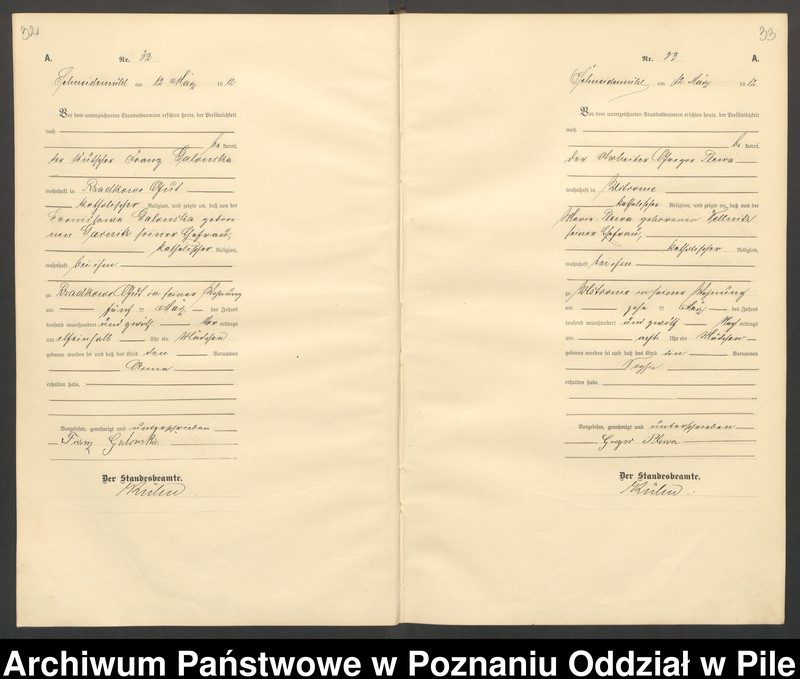 32
A.
Nr. 32
Schneidemühl am 12 März 1912
Vor dem unterzeichneten Standesbeamten erschien heute, der Persönlichkeit
nach
be kannt,
der Kutscher Franz Galonska
wohnhaft in Brodkowo Gut
katholischer Religion, und zeigte an, daß von der
Galonska gebore
nen seiner Ehefrau,
katholischer Religion,
wohnhaft bei ihm
zu Gut in seiner Wohnung
am fünf ten März des Jahres
tausend neunhundert und zwölf Vor mittags
um Uhr ein Mädchen
geboren worden sei und daß das Kind den Vornamen
Anna
erhalten habe.
Vorgelesen, genehmigt und unterschrieben
Franz Galonska
Der Standesbeamte.
33
Nr. 33
A.
Schneidemühl am 12. März 1912
Vor dem unterzeichneten Standesbeamten erschien heute, der Persönlichkeit
nach
be kannt,
der Arbeiter Gregor Plewa
wohnhaft in Usch
katholischer Religion, und zeigte an, daß von der
Maria Plewa geborenen
seiner Ehefrau,
katholischer Religion,
wohnhaft bei ihm
zu in seiner Wohnung
am zehn ten März des Jahres
tausend neunhundert und zwölf Nach mittags
um acht Uhr ein Mädchen
geboren worden sei und daß das Kind den Vornamen
erhalten habe.
Vorgelesen, genehmigt und unterschrieben
Gregor Plewa
Der Standesbeamte.
Archiwum Państwowe w Poznaniu Oddział w Pile